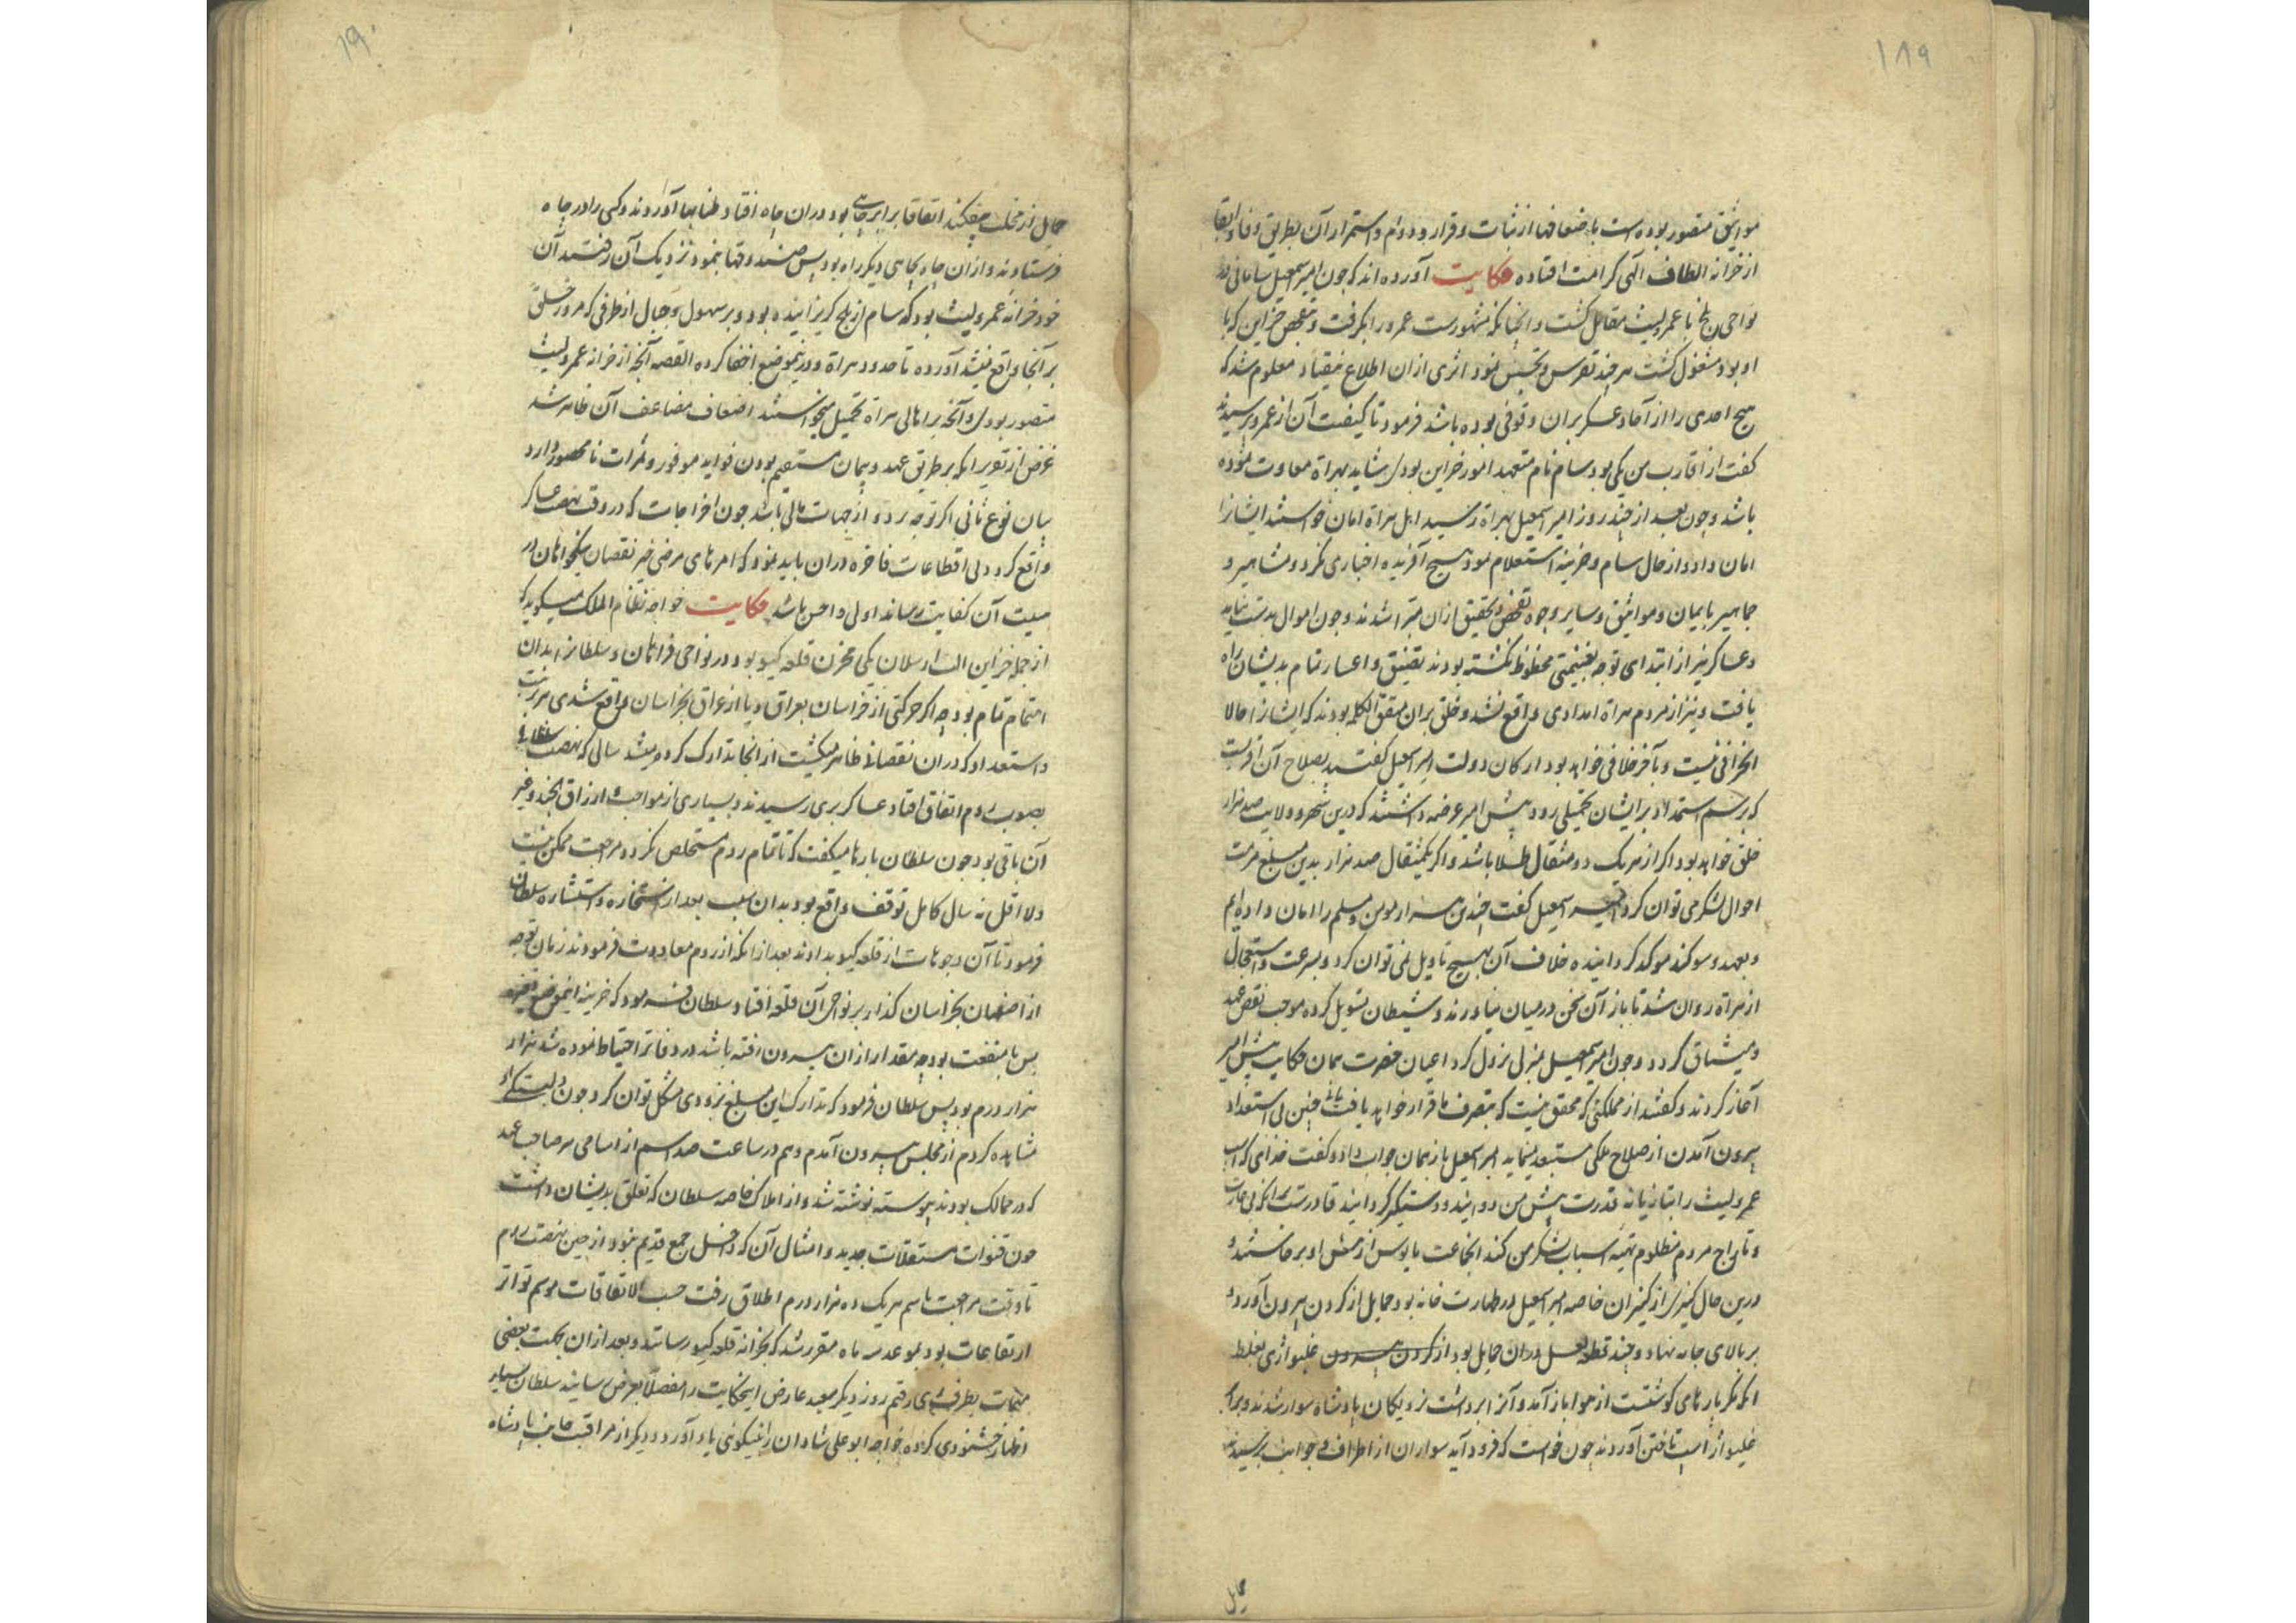 ۱۸۹
مواثیق متصور بوده است باضعافها از ثبات و قرار و دوام و استمرار آن بطریق وفا و ابقا
از خزانه الطاف الهی کرامت افتاده حکایت آورده اند که چون امیر اسمعیل سامانی در
نواحی بلخ با عمرو لیث مقابل کشت و انچنانکه مشهورست عمرو را بکرفت و بتفحص خزاین که با
او بود مشغول کشت هرچند تفرس و تجسس نمود اثری از ان اطلاع نیفتاد معلوم شد که
هیچ احدی را از آحاد عسکر بران وقوفی بوده باشد فرمود تا کیفیت آن از عمرو پرسیدند
کفت از اقارب من یکی بود سام نام متعهد امور خزاین بود شاید بهراة معاودت نموده
باشد و چون بعد از چند روز امیر اسمعیل بهراة رسید اهل هراة امان خواستند ایشانرا
امان داد و از حال سام و خزینه استعلام نمود هیچ آفریده اخباری نکرد و مشاهیر و
جماهیر بایمان و مواثیق و سایر وجوه تفحص و تحقیق ازان متبرا شدند و چون اموال بدست نیامد
و عساکر نیز از ابتدای توجه بغنیمتی محظوظ نکشته بودند تضییق و اعسار تمام بدیشان راه
یافت و نیز از مردم هراة امدادی واقع نشد و خلق بران متفق الکلمه بودند که ایشانرا حالا
انحرافی نیست و بآخر خلافی خواهد بود ارکان دولت امیر اسمعیل کفتند بصلاح آن اقربست
که برسم استمداد بر ایشان تحمیلی رود پیش امیر عرضه داشتند که درین شهر و ولایت صد هزار
خلق خواهد بود اکر از هر یک دو مثقال طلا باشد و اکر یکمثقال صد هزار بدین مبلغ مرمت
احوال لشکر می توان کرد امیر اسمعیل کفت چندین هزار مومن و مسلم را امان داده ایم
و بعهد و سوکند موکد کردانیده خلاف آن بهیچ تاویل نمی توان کرد و بسرعت و استعجال
از هراة روان شد تا باز آن سخن درمیان نیاورند و شیطان تسویل کرده موجب نقض عهد
و میثاق کردد و چون امیر اسمعیل بمنزل نزول کرد اعیان حضرت همان حکایت پیش امیر
آغاز کردند و کفتند از مملکتی که محقق نیست که بتصرف ما قرار خواهد یافت یا نه چنین بی استعداد
بیرون آمدن از صلاح ملکی مستبعد مینماید امیر اسمعیل باز همان جواب داد و کفت خدای که اسب
عمرو لیث را بتازیانه قدرت پیش من دوانید و دستکیر کردانید قادرست برانکه بی غارت
و تاراج مردم مظلوم تهیه اسباب لشکر من کند انجماعت مایوس از پیش او برخاستند و
درین حال کنیزکی از کنیزان خاصه امیر اسمعیل در طهارت خانه بود حمایل از کردن بیرون آورد و
بر بالای جامه نهاد و چند قطعه لعل دران حمایل بود از کردن بیرون غلیواژی بغلط
انکه مکر پارهای کوشتست از هوا باز آمد و آنرا برداشت نزدیکان پادشاه سوار شدند و بر اثر
غلیواژ اسب تاختن آوردند چون خواست که فرود آید سواران از اطراف و جوانب برسیدند
۱۹۰
حمایل از مخلب بیفکند اتفاقا برابر چاهی بود دران چاه افتاد طنابها آوردند و کسی را در چاه
فرستادند و ازان چاه بچاهی دیکر راه بود پس صندوقها بنمود نزدیک آن رفتند آن
خود خزانه عمرو لیث بود که سام از بلخ کریزانیده بود و بر سهول و جبال از طرفی که مرور خلق
بر آنجا واقع نیشد آورده تا حدود هراة و درینموضع اخفا کرده القصه آنچه از خزانه عمرو لیث
متصور بود و آنچه بر اهالی هراة تحمیل میخواستند اضعاف مضاعف آن ظاهر شد
غرض از تقریر انکه بر طریق عهد و پیمان مستقیم بودن فواید موفور و ثمرات نامحصور دارد
بیان نوع ثانی اکر توجه بر دو از جهات مالی باشد چون اخراجات که در وقت نهضت عساکر
واقع کردد بی اقطاعات فاخره دران باید نمود که امرهای مرضی خیر نقصان نیکخواهان در
میت آن کفایت رساند اولی و احسن باشد حکایت خواجه نظام الملک میکوید که
از جمله خزاین الب ارسلان یکی مخزن قلعه کیو بود در نواحی فراهان و سلطانرا بدان
اهتمام تمام بود چه اکر حرکتی از خراسان بعراق و یا از عراق بخراسان واقع شدی هر مرتبت
و استعداد که دران نقصانی ظاهر میکشت از انجا تدارک کرده میشد سالی که نهضت سلطانی
بصوب روم اتفاق افتاد عساکر بری رسیدند و بسیاری از مواجب و ارزاق لجند و غیر
آن باقی بود چون سلطان بارها میکفت که تا تمام روم مستخلص نکردد مراجعت ممکن نیست
و لا اقل نه سال کامل توقف واقع بود بدان سبب بعد از استخاره و استشاره سلطان
فرمود تا آن وجوهات از قلعه کیو بدادند بعد از انکه از روم معاودت فرمودند زمان توجه
از اصفهان بخراسان کذار بر نواحی آن قلعه افتاد سلطان فرمود که خزینه اینموضع
بس با منفعت بود چه مقدار ازان بیرون رفته باشد در دفاتر احتیاط نموده شد هزار
هزار درم بود پس سلطان فرمود که تدارک این مبلغ بزودی مشکل توان کرد چون
مشاهده کردم از مجلس بیرون آمدم و هم در ساعت صد اسم از اسامی هر صاحب عهد
که در ممالک بودند پیوسته نوشته شد و از املاک خاصه سلطان که تعلق بدیشان داشت
چون قنوات مستغلات جدید و امثال آن که داخل جمع قدیم نبود از حین نهضت روم
تا وقت مراجعت باسم هر یک ده هزار درم اطلاق رفت حسب الاتفاقات موسم تواتر
ارتفاعات بود بموعد سه ماه مقرر شد که بخزانه قلعه کیو رسانند و بعد ازان بجهت بعضی
مهمات بطرف ری رفتم روز دیکر سعید عارض اینحکایت را مفصلا بعرض رسانید سلطان بسیار
اظهار خشنودی کرده خواجه ابو علی شادان را بنیکوئی یاد آورد و دیکر از مراقبت جانب پادشاه